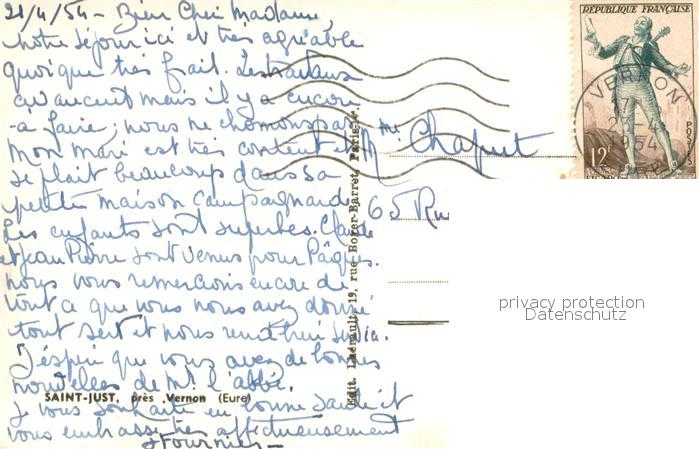 21/4/54 - Bien Chère Madame,
notre séjour ici est très agréable
quoique très frais. Les travaux
avancent mais il y a encore
à faire; nous ne chomons pas
Mon mari est très content et
se plait beaucoup dans sa
petite maison campagnarde
Les enfants sont superbes. Claude
et Jean Pierre sont venus pour Pâques.
nous vous remercions encore de
tout ce que vous nous avez donné
tout sert et nous rend bien service.
J'espère que vous avez de bonnes
nouvelles de Mr. l'abbé.
SAINT-JUST, près Vernon (Eure)
je vous souhaite une bonne santé et
vous embrasse très affectueusement
Fournier
Edit. L'Hérault, 19, rue Borer-Barret, Paris
REPUBLIQUE FRANÇAISE
12F
VERNON
1954
Mme Chaput
65 Ru
privacy protection
Datenschutz